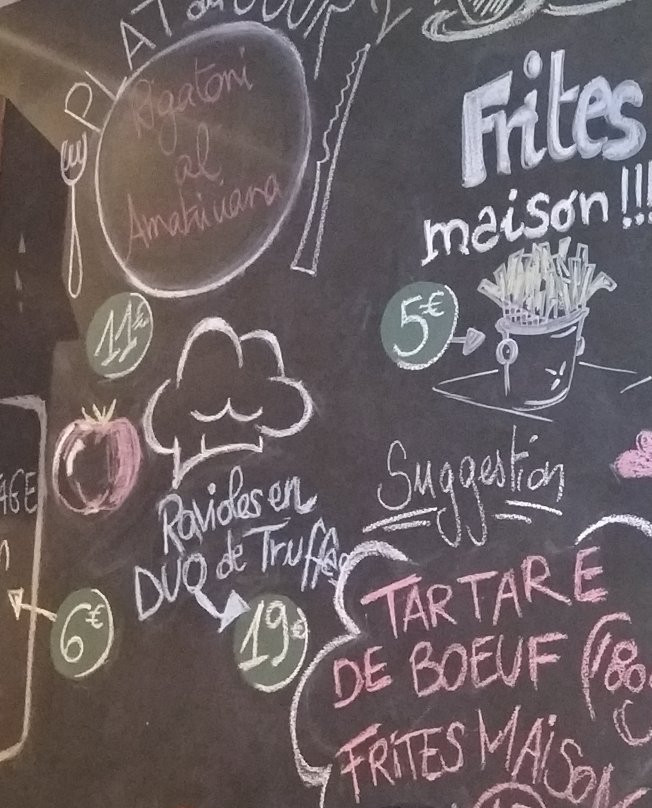 PLAT du
Rigatoni
al
Amatriciana
11€
Frites
maison!!!
5€
Ravioles en
DUO de Truffe
19€
6€
Suggestion
TARTARE
DE BOEUF (180
FRITES MAISON